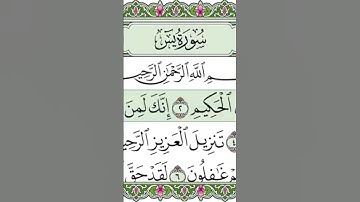 سُورَةُ يسٓ
ـمِ ٱللَّهِ ٱلرَّحْمَٰنِ ٱلرَّحِيـ
ٱلْحَكِيمِ ٢ إِنَّكَ لَمِنَ
٤ تَنزِيلَ ٱلْعَزِيزِ ٱلرَّحِيـ
غَٰفِلُونَ ٦ لَقَدْ حَقَّ